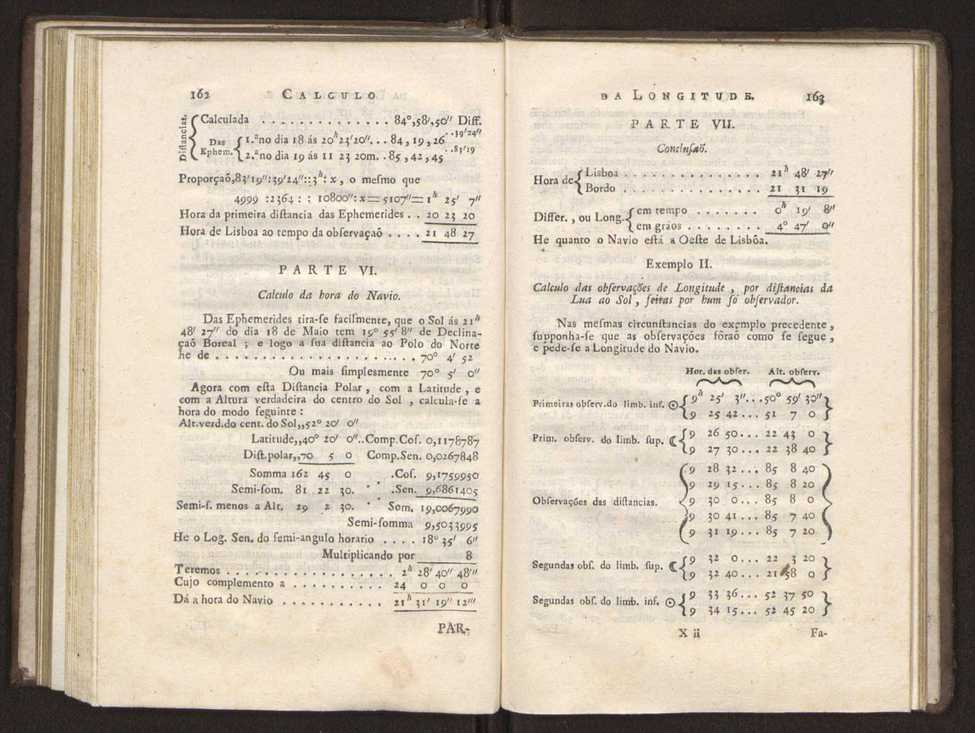 162 CALCULO
Distancias. { Calculada . . . . . . . . . . . . . . 84°,58′,50″ Diff.
Das Ephem. { 1.ª no dia 18 ás 20ʰ23′20″. . . 84 , 19 , 26 . . 39′24″
2.ª no dia 19 ás 11 23 20m. . 85 , 42 , 45 . . 83′19
Proporçaõ,83′19″:39′24″::3ʰ: x , o meſmo que
4999 :2364 : : 10800″: x = 5107″= 1ʰ 25′ 7″
Hora da primeira diſtancia das Ephemerides . . 20 23 20
Hora de Lisboa ao tempo da obſervaçaõ . . . . 21 48 27
PARTE VI.
Calculo da hora do Navio.
Das Ephemerides tira-ſe facilmente, que o Sol ás 21ʰ
48′ 27″ do dia 18 de Maio tem 19° 55′ 8″ de Declina-
çaõ Boreal ; e logo a ſua diſtancia ao Polo do Norte
he de . . . . . . . . . . . . . . . . . . . . . 70° 4′ 52
Ou mais ſimplesmente 70° 5′ 0″
Agora com eſta Diſtancia Polar , com a Latitude , e
com a Altura verdadeira do centro do Sol , calcula-ſe a
hora do modo ſeguinte :
Alt.verd.do cent. do Sol,,52° 20′ 0″
Latitude,,40° 20′ 0″..Comp.Coſ. 0,1178787
Diſt.polar,,70 5 0 Comp.Sen. 0,0267848
Somma 162 45 0 .Coſ. 9,1759950
Semi-ſom. 81 22 30. . . .Sen. 9,6861405
Semi-ſ. menos a Alt. 29 2 30. . Som. 19,0067990
Semi-ſomma 9,5033995
He o Log. Sen. do ſemi-angulo horario . . . . 18° 35′ 6″
Multiplicando por 8
Teremos . . . . . . . . . . . . . . . . . . 2ʰ 28′ 40″ 48‴
Cujo complemento a . . . . . . . . . . . 24 0 0 0
Dá a hora do Navio . . . . . . . . . . . 21ʰ 31′ 19″ 12‴
PAR-
DA LONGITUDE. 163
PARTE VII.
Concluſaõ.
Hora de { Lisboa . . . . . . . . . . . . . . 21ʰ 48′ 27″
Bordo . . . . . . . . . . . . . . 21 31 19
Differ. , ou Long. { em tempo . . . . . . . 0ʰ 19′ 8″
em gráos . . . . . . . . 4° 47′ 0″
He quanto o Navio eſtá a Oeſte de Lisbôa.
Exemplo II.
Calculo das obſervações de Longitude , por diſtancias da
Lua ao Sol , feitas por hum ſó obſervador.
Nas meſmas circunſtancias do exemplo precedente ,
ſupponha-ſe que as obſervações fôraõ como ſe ſegue ,
e pede-ſe a Longitude do Navio.
Hor. das obſer. Alt. obſerv.
Primeiras obſerv.do limb. inf. ☉ { 9ʰ 25′ 3″. . .50° 59′ 30″ }
9 25 42 . . . 51 7 0
Prim. obſerv. do limb. ſup. ☾ { 9 26 50 . . . 22 43 0 }
9 27 30 . . . 22 38 40
9 28 32 . . . 85 8 40
9 29 15 . . . 85 8 20
Obſervações das diſtancias. { 9 30 0 . . . 85 8 0 }
9 30 41 . . . 85 7 40
9 31 19 . . . 85 7 20
Segundas obſ. do limb. ſup. ☾ { 9 32 0 . . . 22 3 20 }
9 32 40 . . . 21 58 0
Segundas obſ. do limb. inf. ☉ { 9 33 36 . . . 52 37 50 }
9 34 15 . . . 52 45 20
X ii Fa-